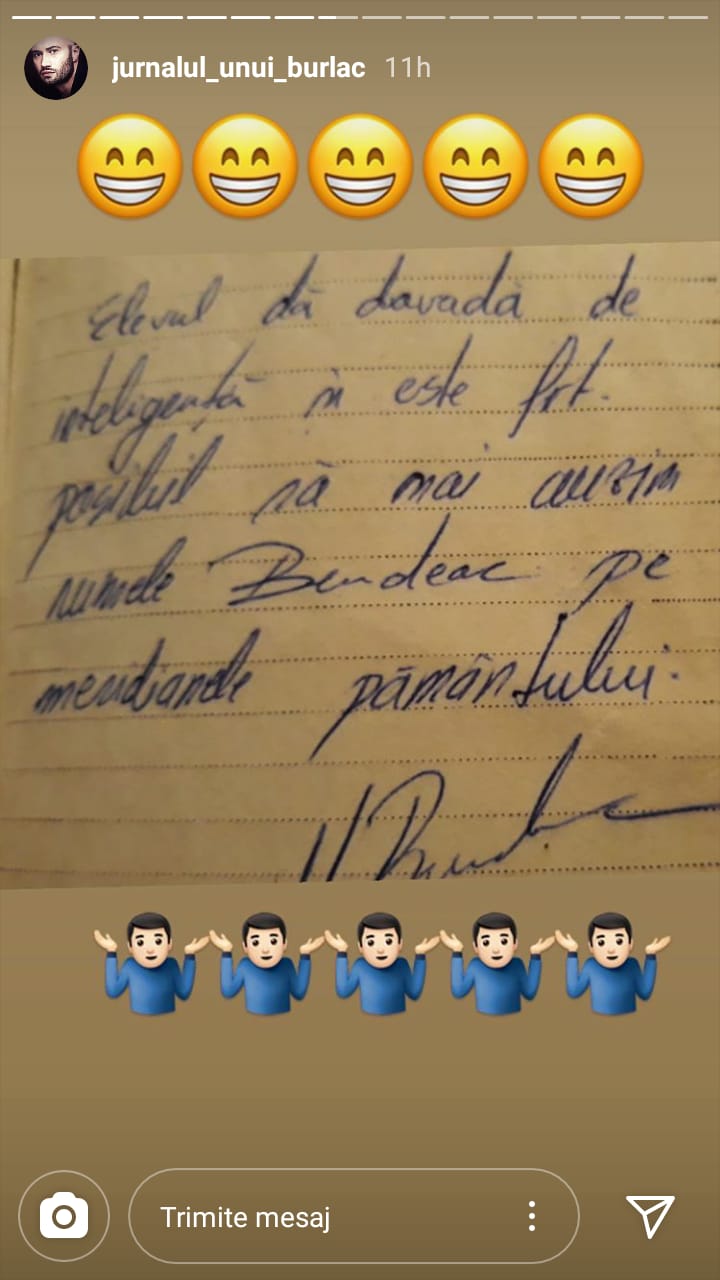 jurnalul_unui_burlac 11h
Elevul dă dovadă de
inteligență și este frt.
posibil să mai auzim
numele Bendeac pe
meridianele pământului.
Trimite mesaj